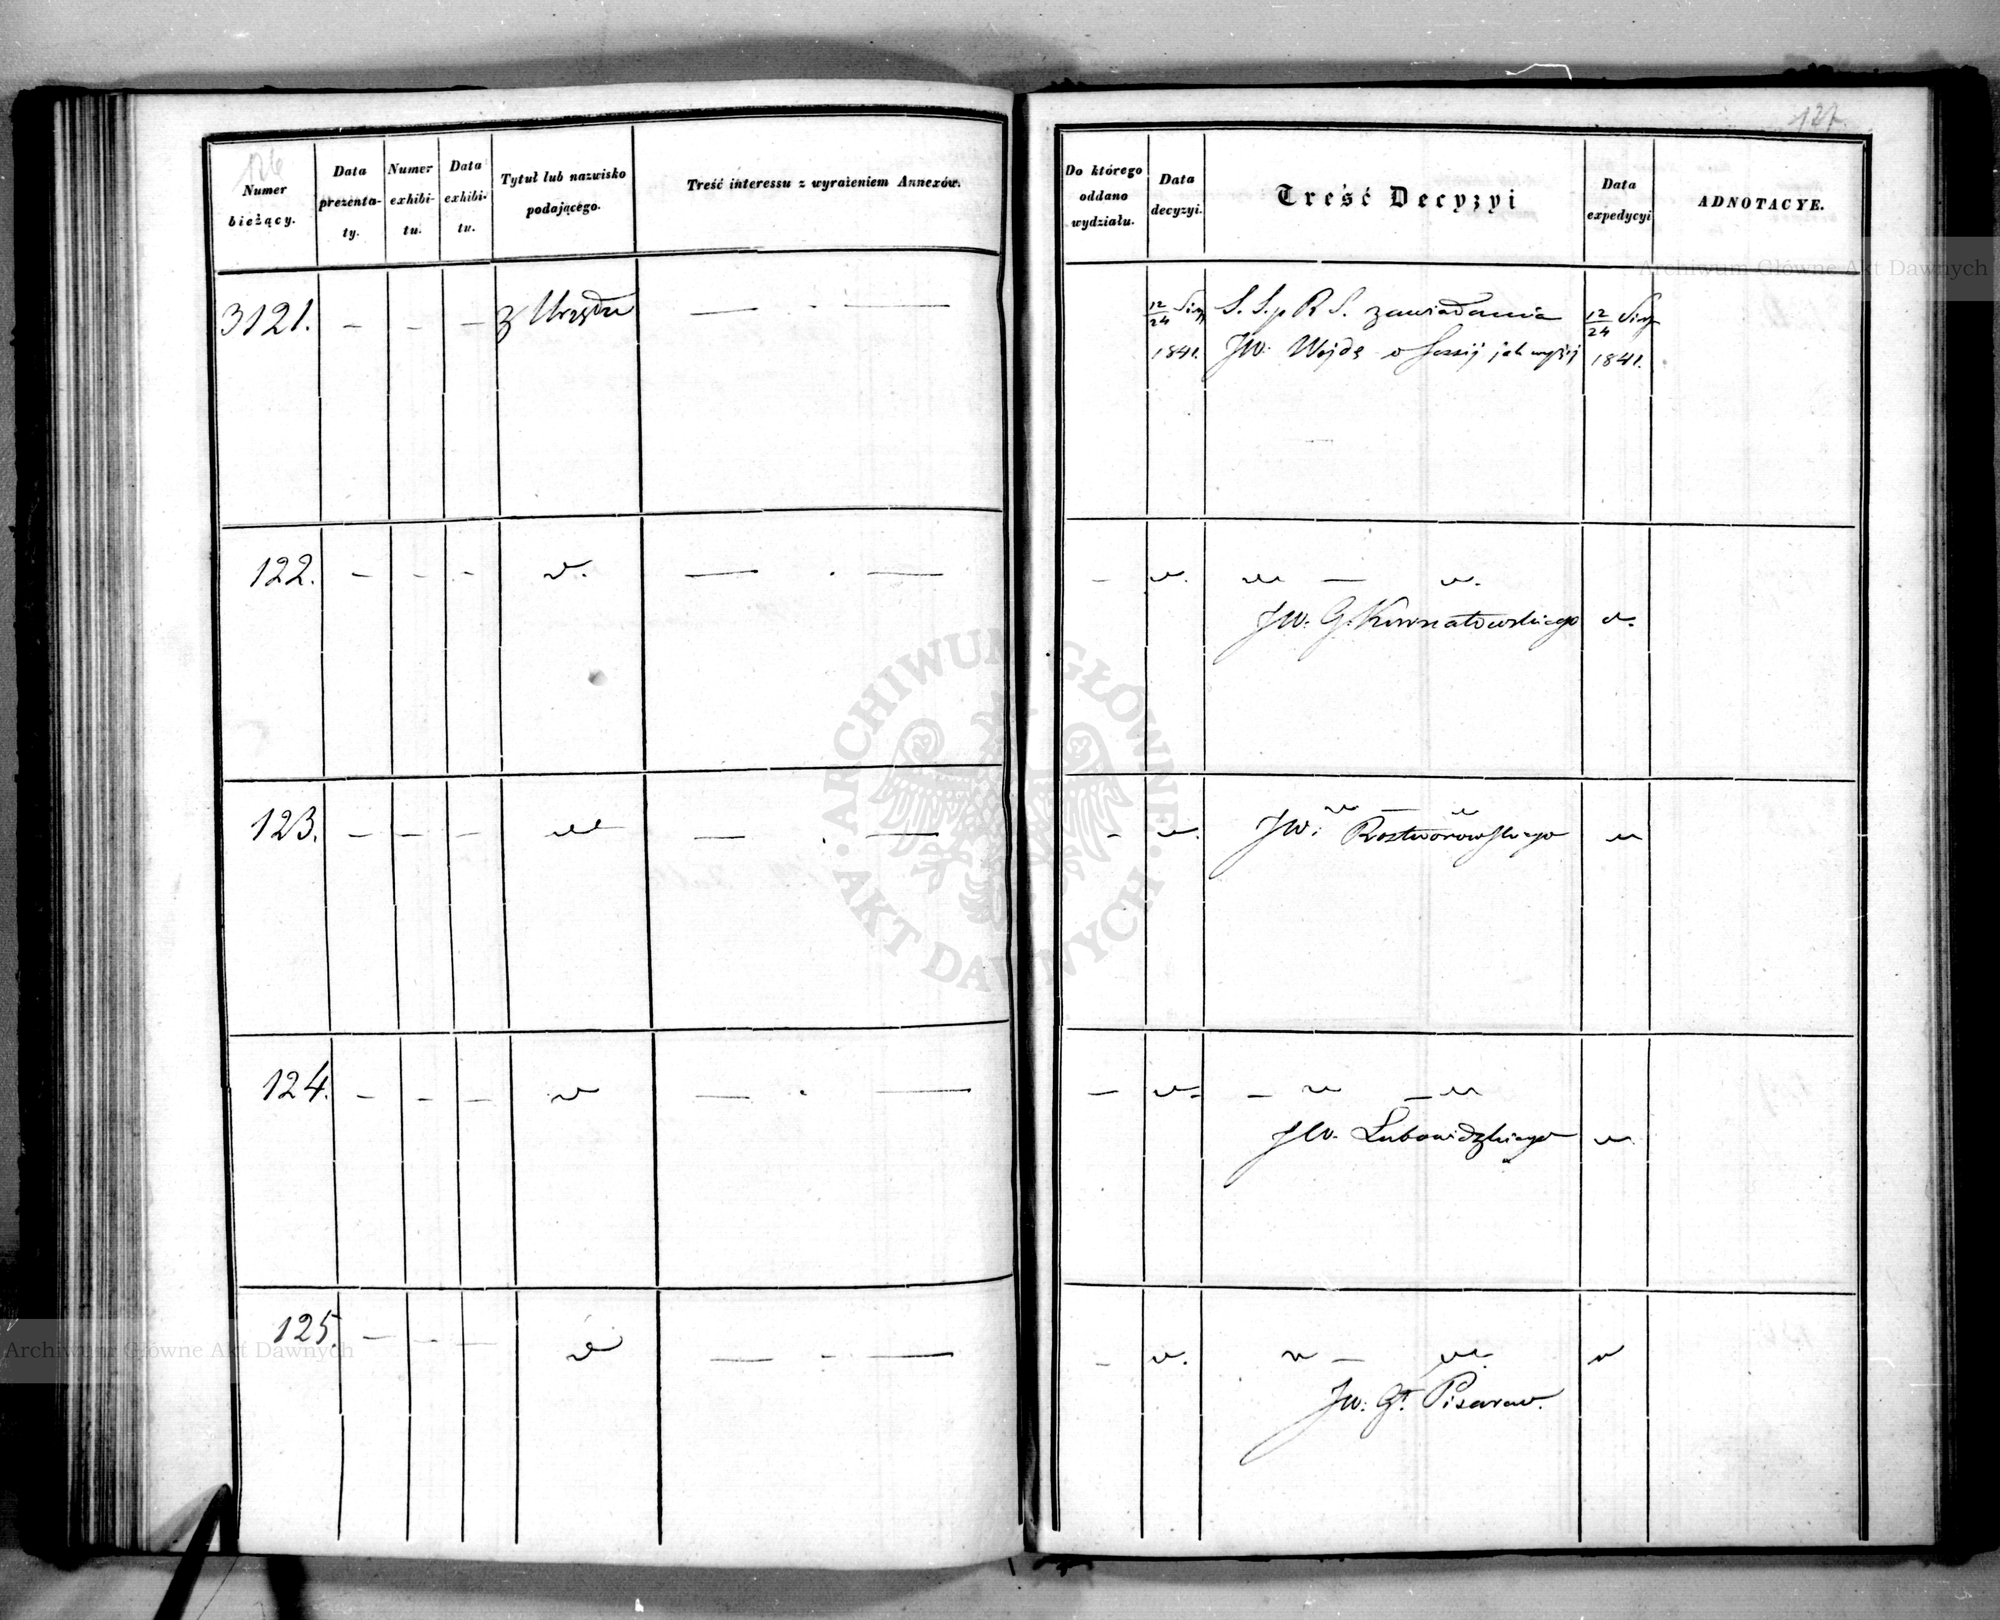 126
Numer
bieżący.
Data
prezenta-
ty.
Numer
exhibi-
tu.
Data
exhibi-
tu.
Tytuł lub nazwisko
podającego.
Treść interessu z wyrażeniem Annexów.
3121. — — — z Urzędu — . —
122. — — — — . —
123. — — — — . —
124. — — — — . —
125. — — — — - —
127.
Do którego
oddano
wydziału.
Data
decyzyi.
Treść Decyzyi
Data
expedycyi
ADNOTACYE.
12/24
1841.
S. S. p R S. zawiadamia
JW. Wojdę o Sessij jak wyżej
12/24
1841.
JW. G. Kurnatowskiego
JW: Rostworowskiego
JW. Lubowidzkiego
JW. Gł. Pisarew.
ARCHIWUM GŁÓWNE
AKT DAWNYCH
Archiwum Główne Akt Dawnych
Archiwum Główne Akt Dawnych